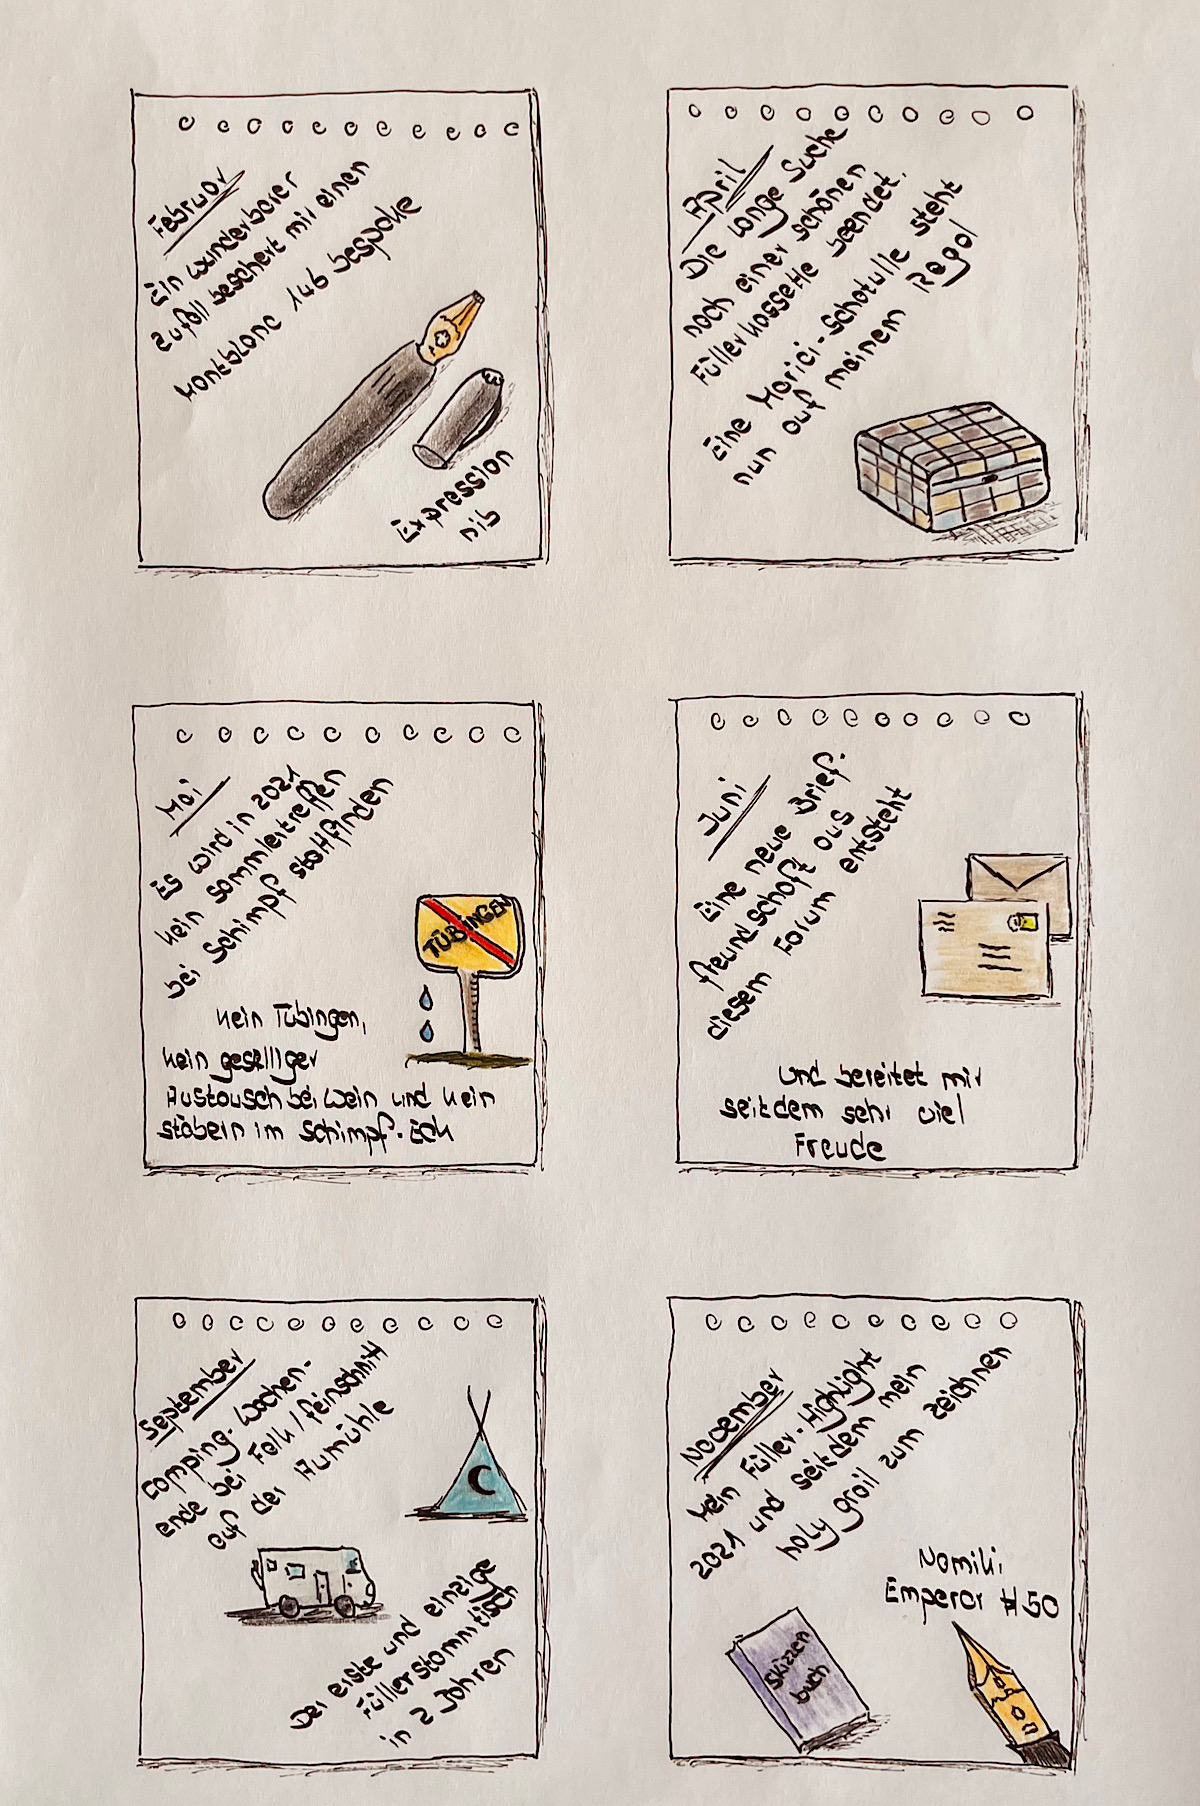 Februar
Ein wunderbarer
Zufall beschert mir einen
Montblanc 146 bespoke
Expression
nib
April
Die lange Suche
nach einer schönen
Füllerkassette beendet.
Eine Marici-Schatulle steht
nun auf meinem Regal
Mai
Es wird in 2021
kein Sammlertreffen
bei Schimpf stattfinden
TÜBINGEN
kein Tübingen,
kein geselliger
Austausch bei Wein und kein
stöbern im Schimpf-Eck
Juni
Eine neue Brief-
freundschaft aus
diesem Forum entsteht
und bereitet mir
seitdem sehr viel
Freude
September
Camping-Wochen-
ende bei Falk/feinschnitt
auf der Aumühle
C
Der erste und einzige
Füllerstammtisch
in 2 Jahren
November
Mein Füller-Highlight
2021 und seitdem mein
holy grail zum zeichnen
Namiki
Emperor #50
Skizzen
buch